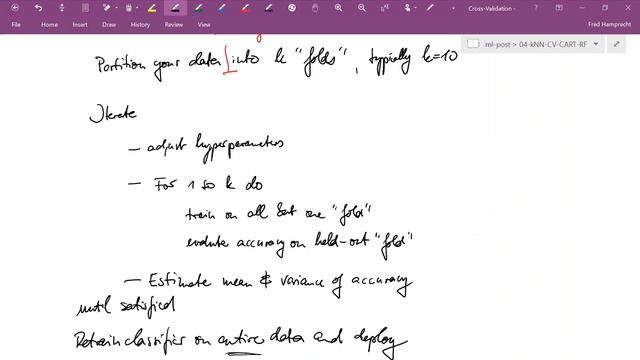 Cross-Validation -
Fred Hamprecht
File Home Insert Draw View Help
ml-post > 04-kNN-CV-CART-RF
Partition your data into k "folds", typically k=10
Iterate
— adjust hyperparameters
— For 1 to k do
train on all but one "fold"
evaluate accuracy on held-out "fold"
— Estimate mean & variance of accuracy
until satisfied
Retrain classifier on entire data and deploy